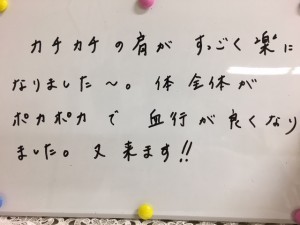 カチカチの肩が すっごく楽に
なりました〜。体全体が
ポカポカで 血行が良くなり
ました。又来ます!!